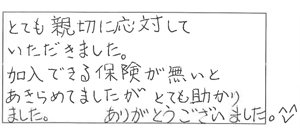 とても親切に応対して
いただきました。
加入できる保険が無いと
あきらめてましたが とても助かり
ました。 ありがとうございました。^^